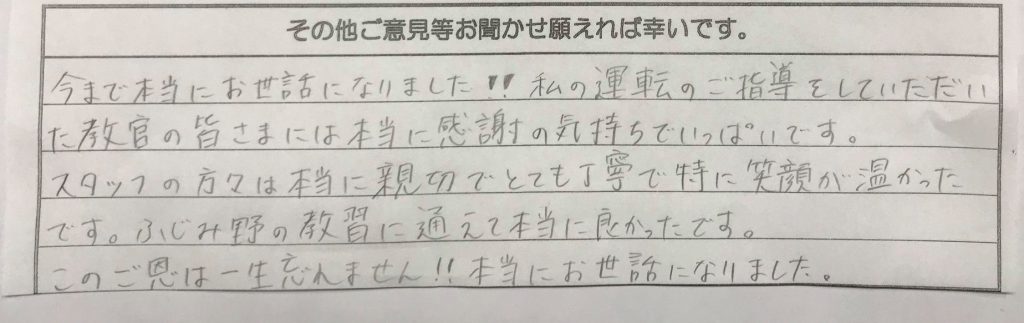 その他ご意見等お聞かせ願えれば幸いです。
今まで本当にお世話になりました!! 私の運転のご指導をしていただい
た教官の皆さまには本当に感謝の気持ちでいっぱいです。
スタッフの方々は本当に親切でとても丁寧で特に笑顔が温かった
です。ふじみ野の教習に通えて本当に良かったです。
このご恩は一生忘れません!! 本当にお世話になりました。